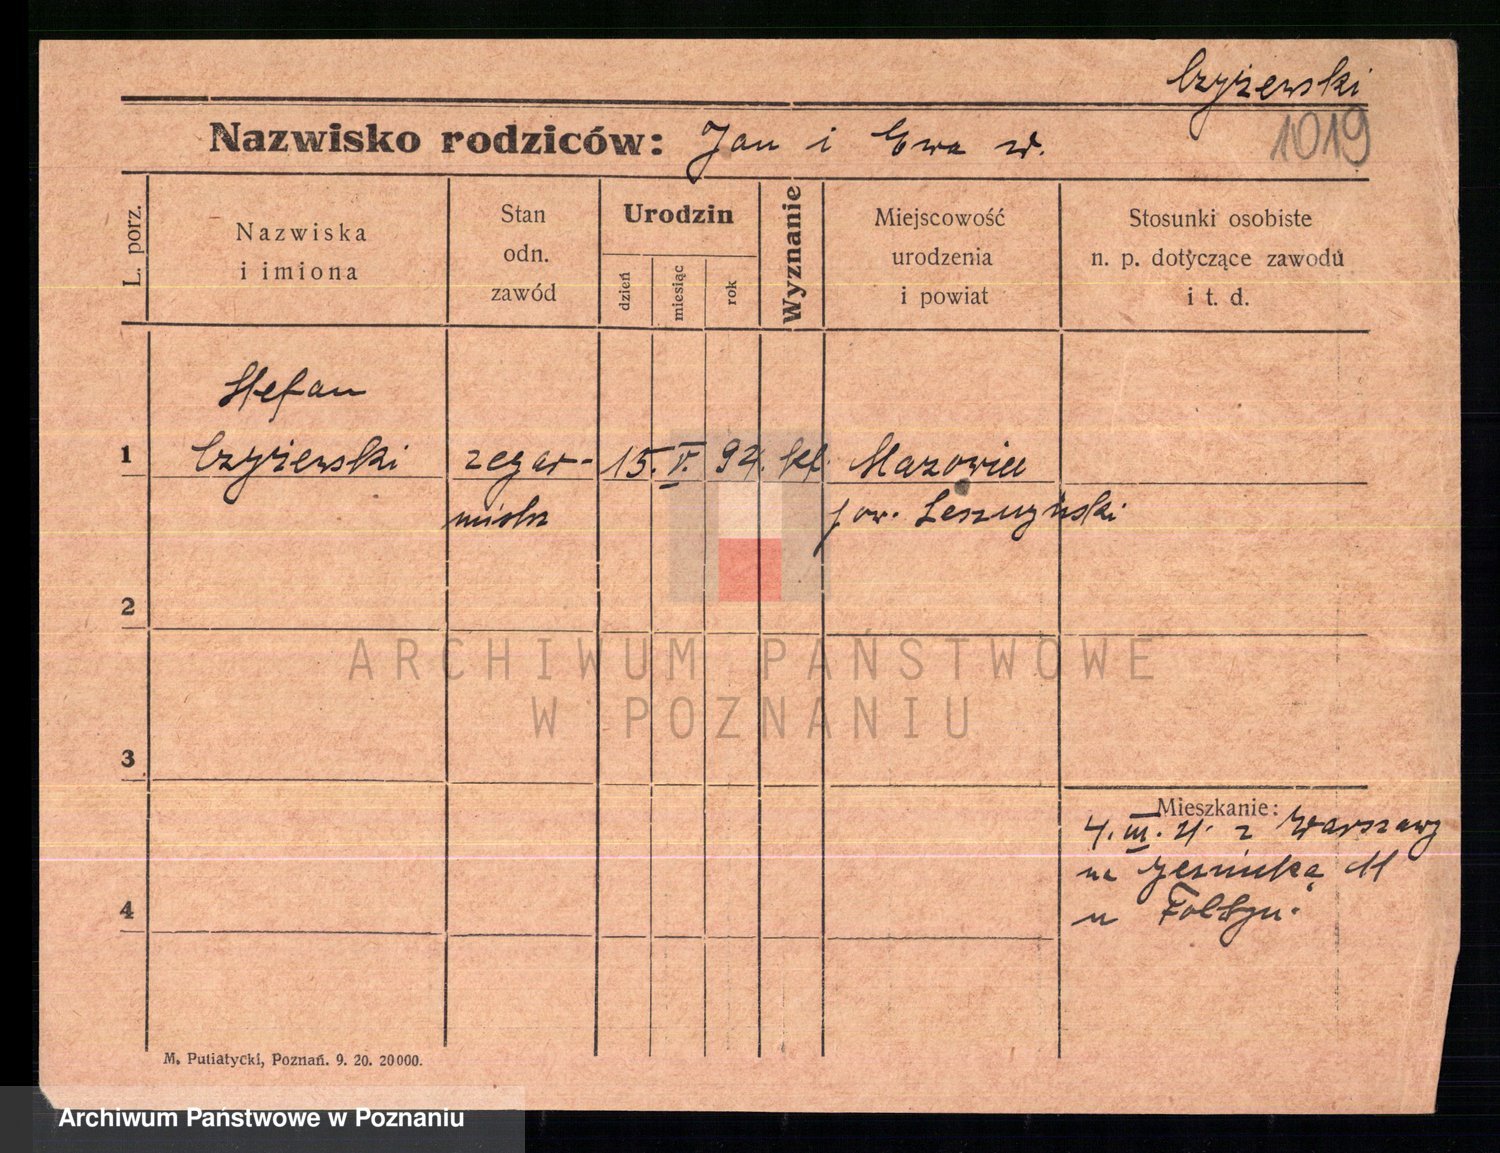 Czyżewski
Nazwisko rodziców: Jan i Ewa
1019
L. porz.
Nazwiska
i imiona
Stan
odn.
zawód
Urodzin
dzień
miesiąc
rok
Wyznanie
Miejscowość
urodzenia
i powiat
Stosunki osobiste
n. p. dotyczące zawodu
i t. d.
Stefan
1 Czyżewski zegar- 15. V. 92. kat. Mazowiec
mistrz pow. Leszczyński
2
ARCHIWUM PAŃSTWOWE
W POZNANIU
3
Mieszkanie:
4. III. 21. z Warszawy
na
4
u
M. Putiatycki, Poznań. 9. 20. 20000.
Archiwum Państwowe w Poznaniu